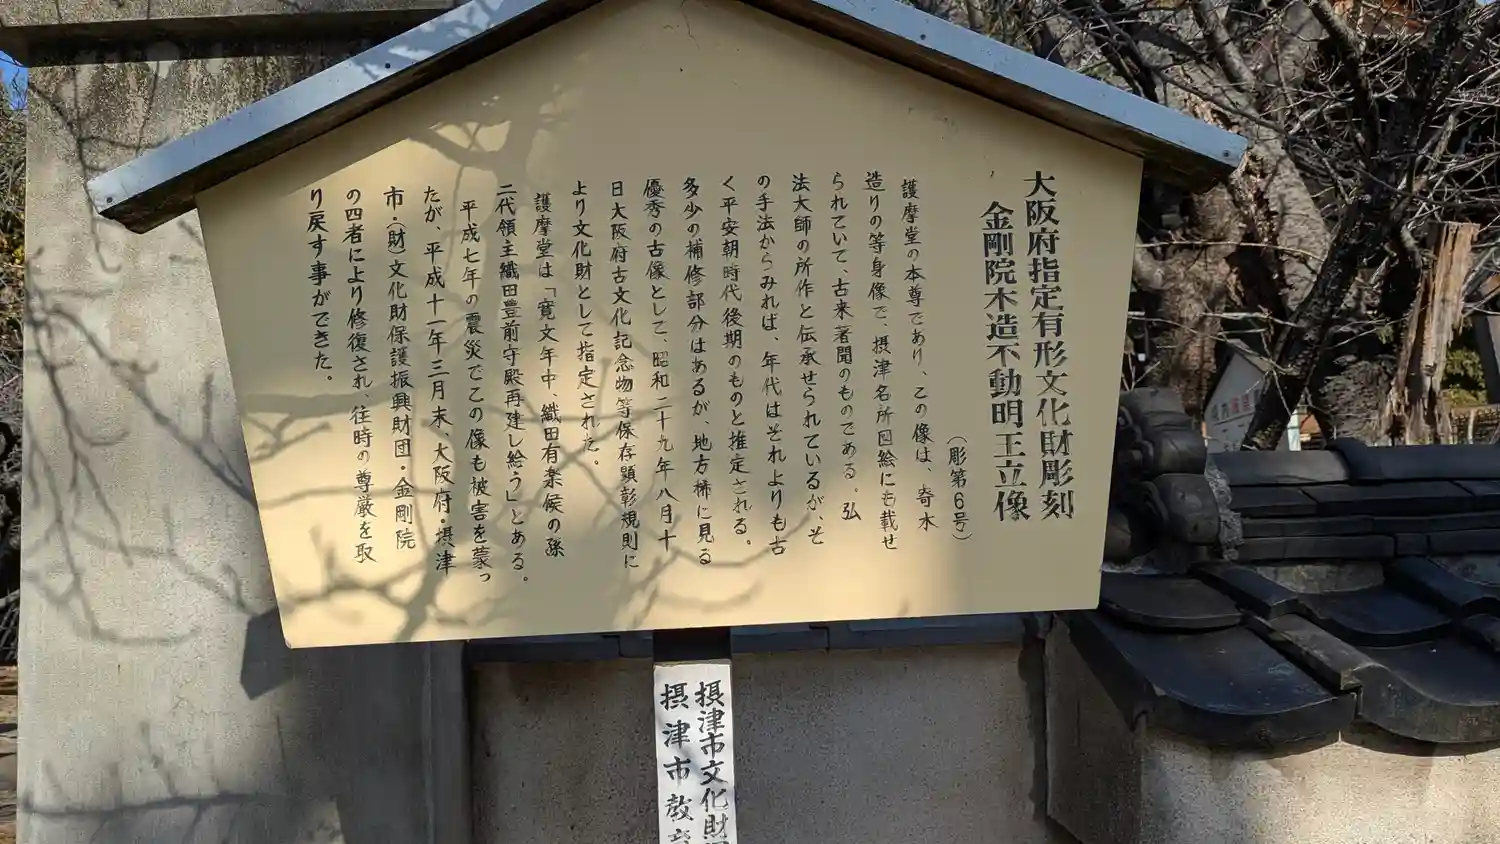 大阪府指定有形文化財彫刻
金剛院木造不動明王立像
(彫第6号)
護摩堂の本尊であり、この像は、寄木
造りの等身像で、摂津名所図絵にも載せ
られていて、古来著聞のものである。弘
法大師の所作と伝承せられているが、そ
の手法からみれば、年代はそれよりも古
く平安朝時代後期のものと推定される。
多少の補修部分はあるが、地方稀に見る
優秀の古像として、昭和二十九年八月十
日大阪府古文化記念物等保存顕彰規則に
より文化財として指定された。
護摩堂は「寛文年中、織田有楽候の孫
二代領主織田豊前守殿再建し給う」とある。
平成七年の震災でこの像も被害を蒙っ
たが、平成十一年三月末、大阪府・摂津
市・(財)文化財保護振興財団・金剛院
の四者により修復され、往時の尊厳を取
り戻す事ができた。
摂津市文化財
摂津市教育